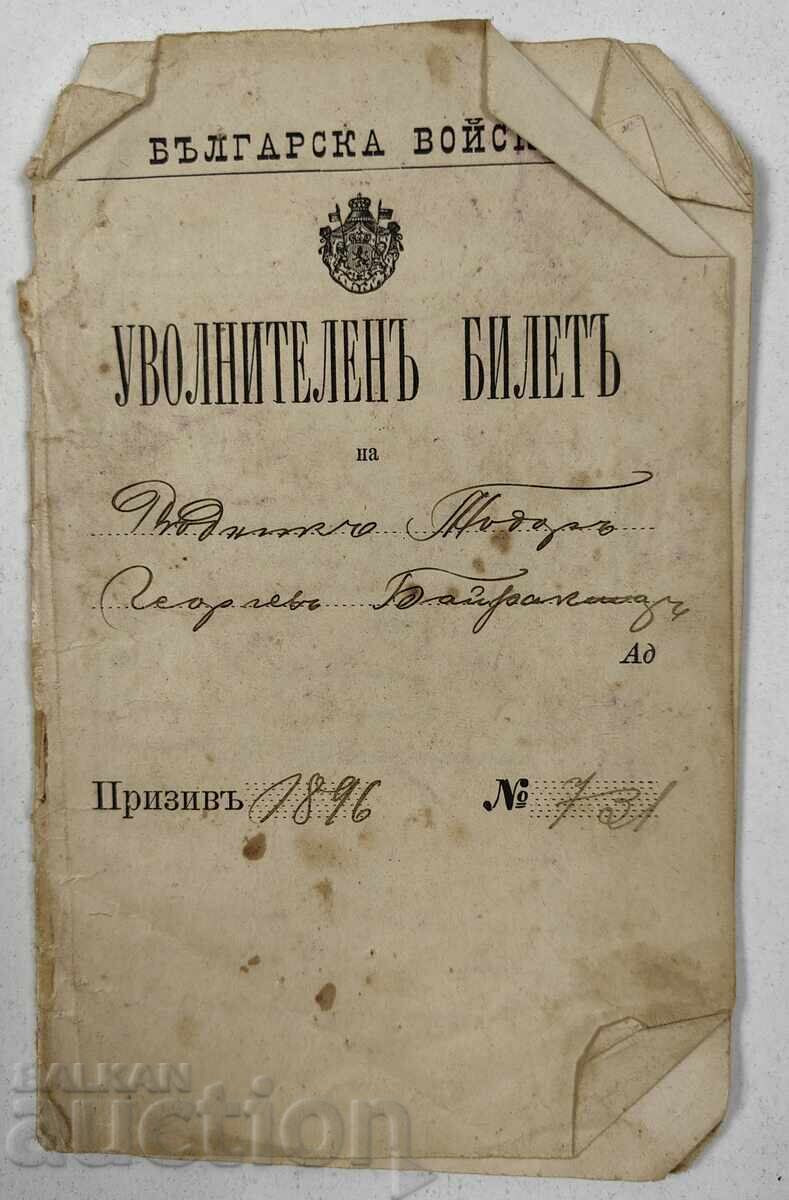 БЪЛГАРСКА ВОЙСК
УВОЛНИТЕЛЕНЪ БИЛЕТЪ
на
Тодоръ
Георгевъ
Ад
Призивъ 1896 № 731
BALKAN
auction